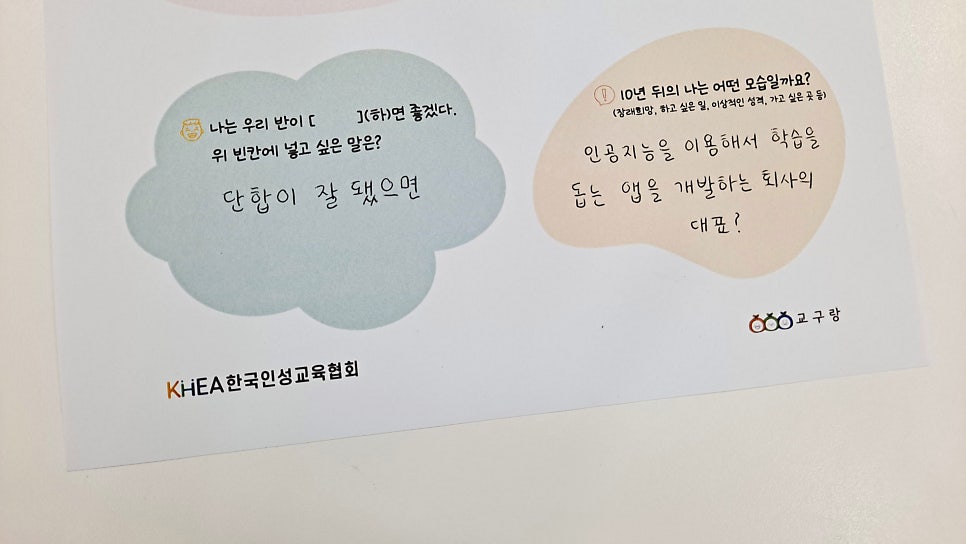 나는 우리 반이 [ ](하)면 좋겠다.
위 빈칸에 넣고 싶은 말은?
단합이 잘 됐으면
10년 뒤의 나는 어떤 모습일까요?
(장래희망, 하고 싶은 일, 이상적인 성격, 가고 싶은 곳 등)
인공지능을 이용해서 학습을
돕는 앱을 개발하는 회사의
대표?
KHEA한국인성교육협회
교구랑